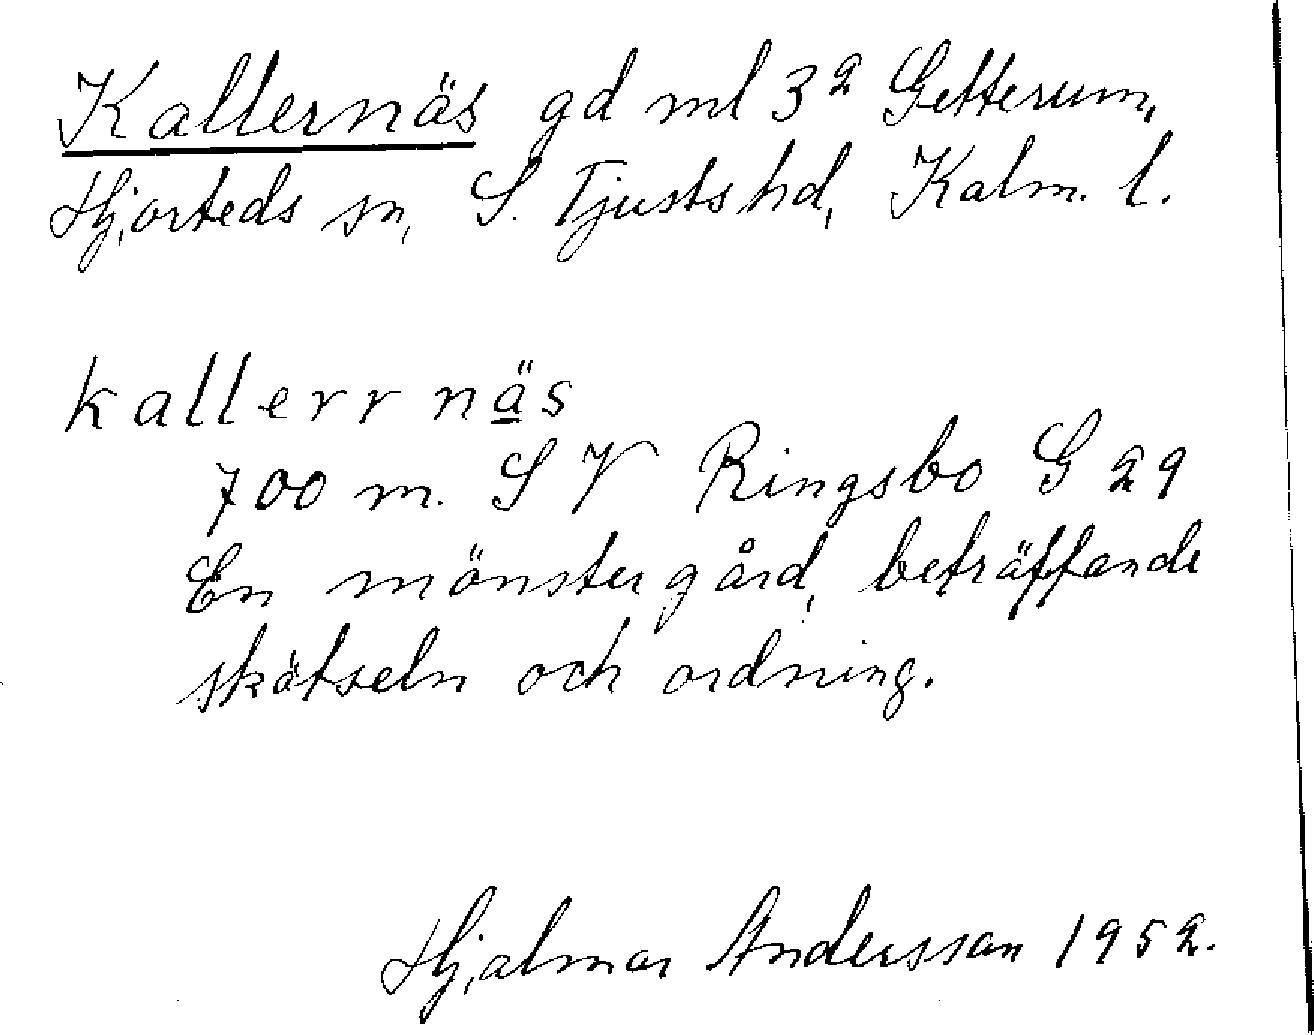 Kallernäs gd ml 3² Getterum,
Hjorteds sn, S. Tjusts hd, Kalm. l.
kallerrnäs
700 m. SV Ringsbo G 29
En mönstergård, beträffande
skötseln och ordning.
Hjalmar Andersson 1952.